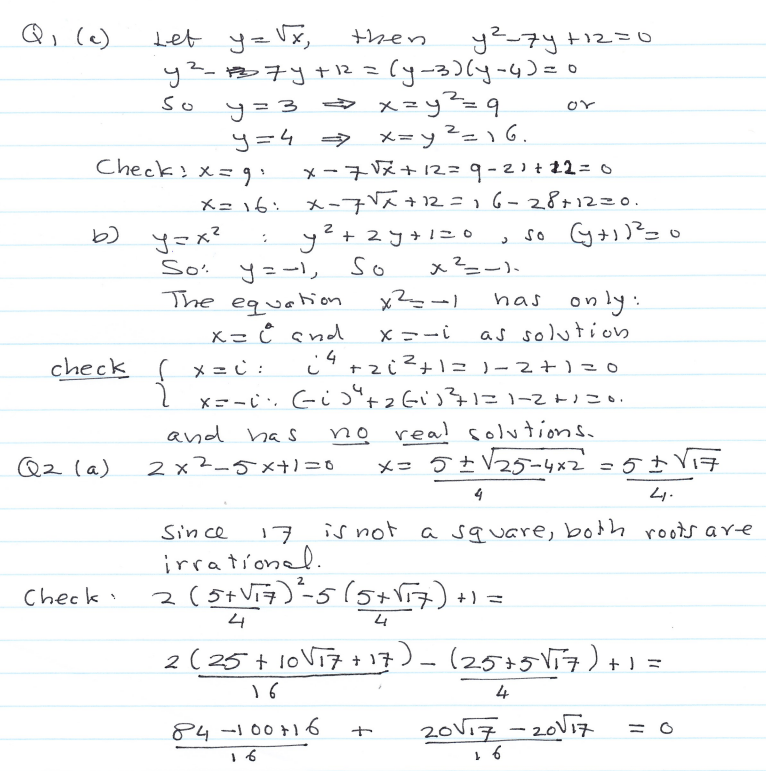 Q1 (a) Let y=√x, then y²-7y+12=0
y²- 7y+12 = (y-3)(y-4)=0
So y=3 ⇒ x=y²=9 or
y=4 ⇒ x=y²=16.
Check: x=9: x-7√x+12=9-21+12=0
x=16: x-7√x+12=16-28+12=0.
b) y=x² : y²+2y+1=0, so (y+1)²=0
So: y=-1, So x²=-1.
The equation x²=-1 has only:
x=i and x=-i as solution
check { x=i: i⁴+2i²+1=1-2+1=0
x=-i: (-i)⁴+2(-i)²+1=1-2+1=0.
and has no real solutions.
Q2 (a) 2x²-5x+1=0 x= (5±√(25-4×2))/4 = (5±√17)/4.
Since 17 is not a square, both roots are
irrational.
Check: 2((5+√17)/4)²-5((5+√17)/4)+1=
2(25+10√17+17)/16 - (25+5√17)/4 +1=
(84-100+16)/16 + (20√17-20√17)/16 = 0